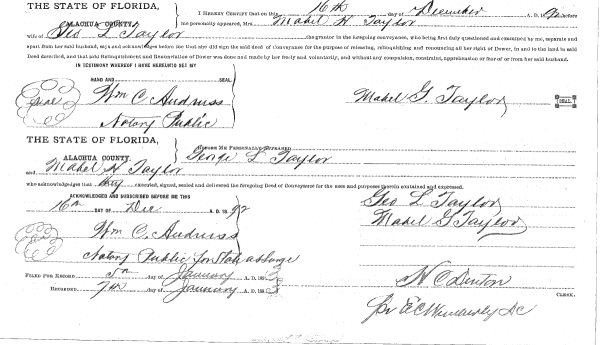 THE STATE OF FLORIDA,
ALACHUA COUNTY.
I HEREBY CERTIFY that on this 16th day of December A. D. 1892 before
me personally appeared, Mrs. Mabel H Taylor
wife of Geo L Taylor the grantor in the foregoing conveyance, who being first duly questioned and examined by me, separate and
apart from her said husband, says and acknowledges before me that she did sign the said deed of conveyance for the purpose of releasing, relinquishing and renouncing all her right of Dower, in and to the land in said
Deed described, and that said Relinquishment and Renunciation of Dower was done and made by her freely and voluntarily, and without any compulsion, constraint, apprehension or fear of or from her said husband.
IN TESTIMONY WHEREOF I HAVE HEREUNTO SET MY
HAND AND SEAL.
Seal Wm C. Andruss
Notary Public
Mabel G. Taylor SEAL.
THE STATE OF FLORIDA,
ALACHUA COUNTY.
BEFORE ME PERSONALLY APPEARED George L Taylor
and Mabel H Taylor
who acknowledges that they executed, signed, sealed and delivered the foregoing Deed of Conveyance for the uses and purposes therein contained and expressed.
ACKNOWLEDGED AND SUBSCRIBED BEFORE ME THIS
16th DAY OF Dec A. D. 1892
Geo L Taylor
Mabel G Taylor
Seal Wm C. Andruss
Notary Public for State at large
FILED FOR RECORD 5th day of January A. D. 189
RECORDED 7th day of January A. D. 189
H C Denton CLERK.
pr E C Wimberly DC